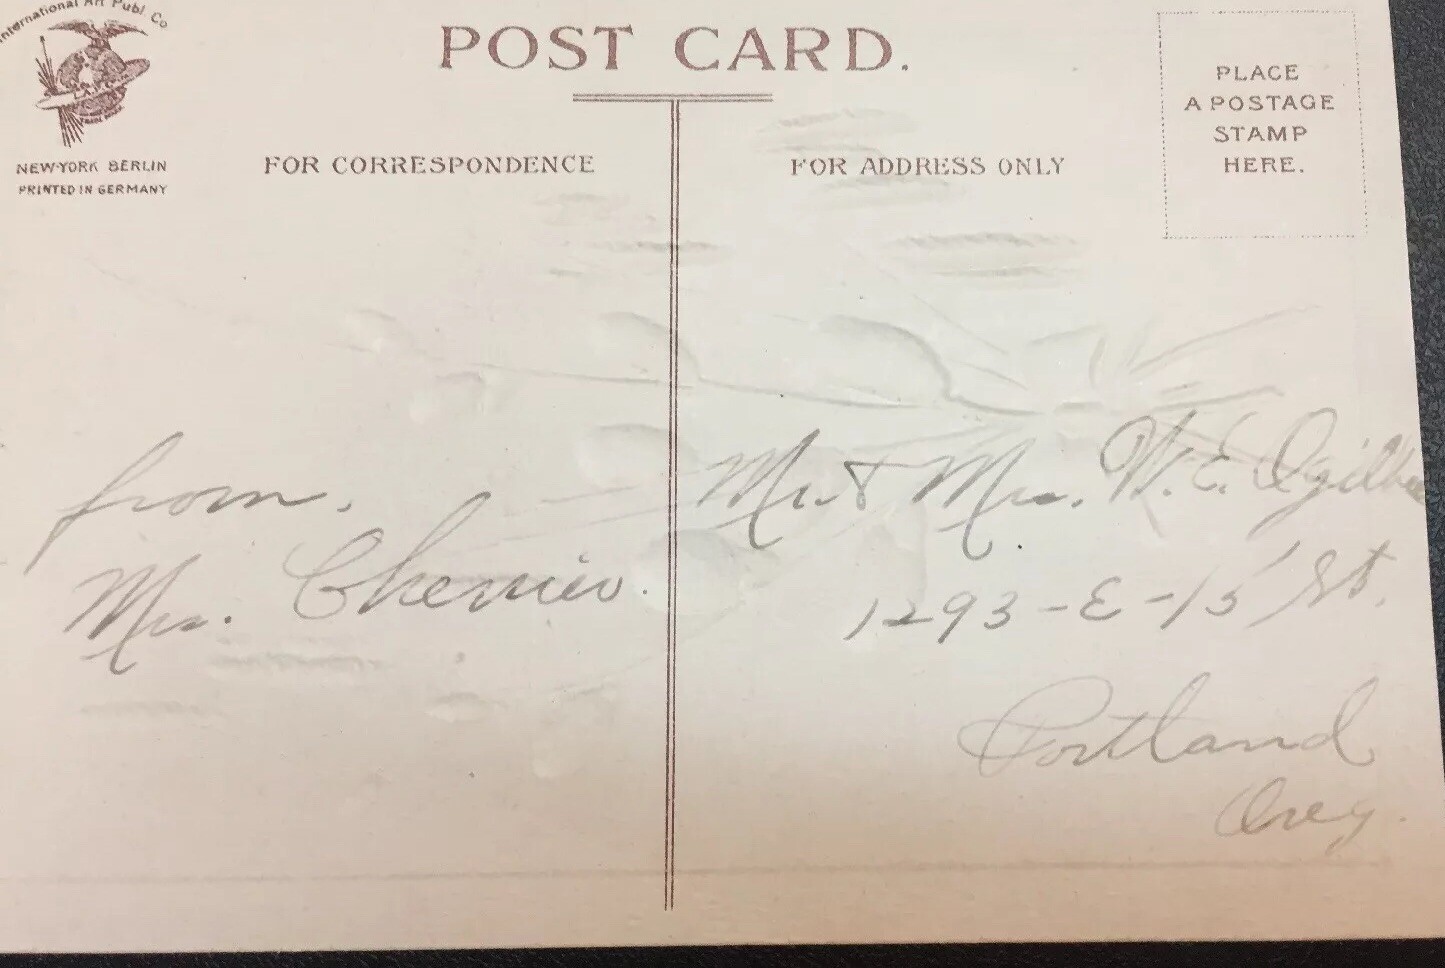 International Art Publ. Co
NEW-YORK BERLIN
PRINTED IN GERMANY
POST CARD.
FOR CORRESPONDENCE
FOR ADDRESS ONLY
PLACE
A POSTAGE
STAMP
HERE.
from,
Mrs. Cherrier.
Mr. & Mrs. W. E. Ogilbee
1293-E-15 St.
Portland
Oreg.